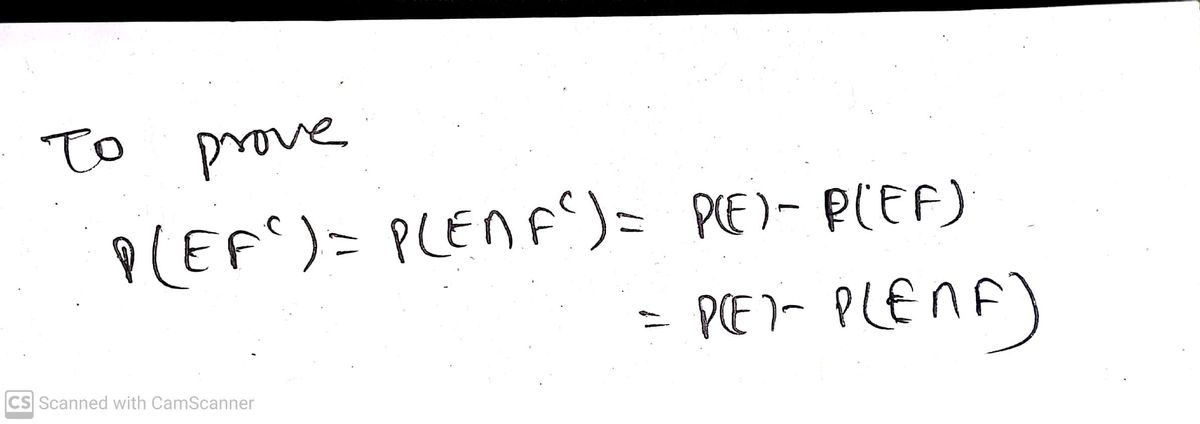 To prove
P(EFᶜ) = P(E∩Fᶜ) = P(E) - P(EF)
= P(E) - P(E∩F)
CS Scanned with CamScanner